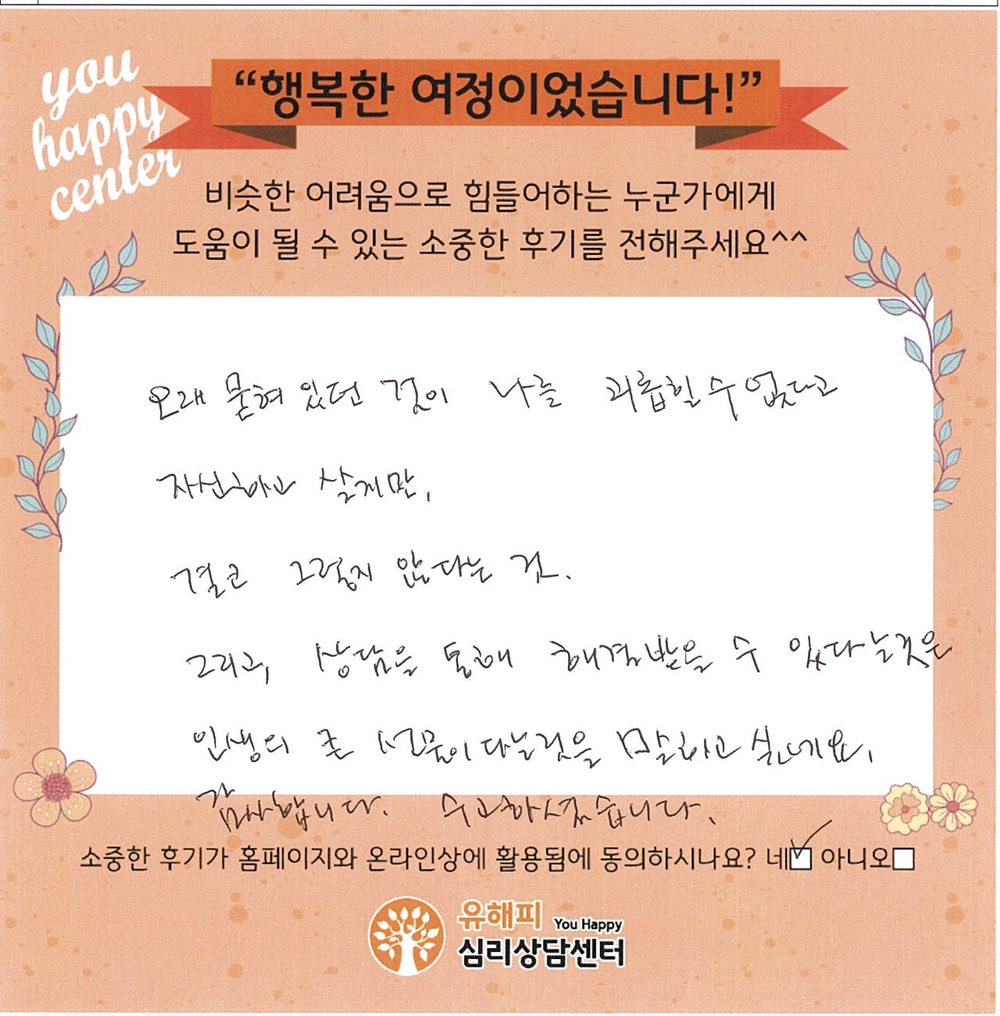 you
happy
center
“행복한 여정이었습니다!”
비슷한 어려움으로 힘들어하는 누군가에게
도움이 될 수 있는 소중한 후기를 전해주세요^^
오래 묻혀 있던 것이 나를 괴롭힐 수 없다고
자신하고 살지만,
결코 그렇지 않다는 것.
그리고, 상담을 통해 해결받을 수 있다는것은
인생의 큰 선물이다는것을 말하고 싶네요,
감사합니다. 수고하셨습니다.
소중한 후기가 홈페이지와 온라인상에 활용됨에 동의하시나요? 네 아니오
유해피 You Happy
심리상담센터